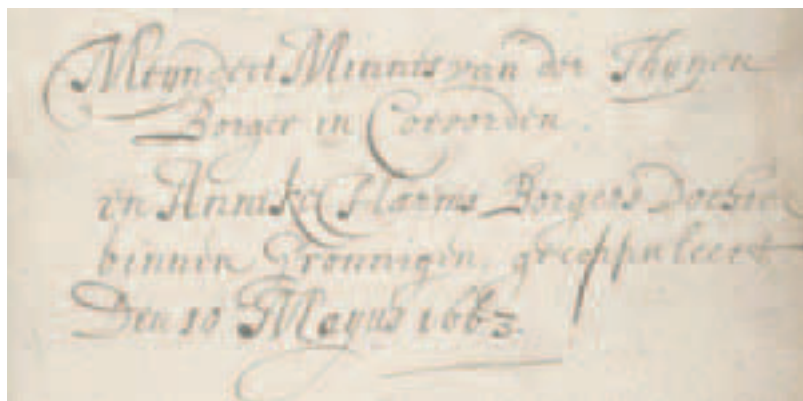 Meyndert Minnis van der Thijnen
Borger in Coevorden.
en Annike Harms Borgers Dochter
binnen Gronnigen, gecoppuleert
Den 10 Mayus 1663.